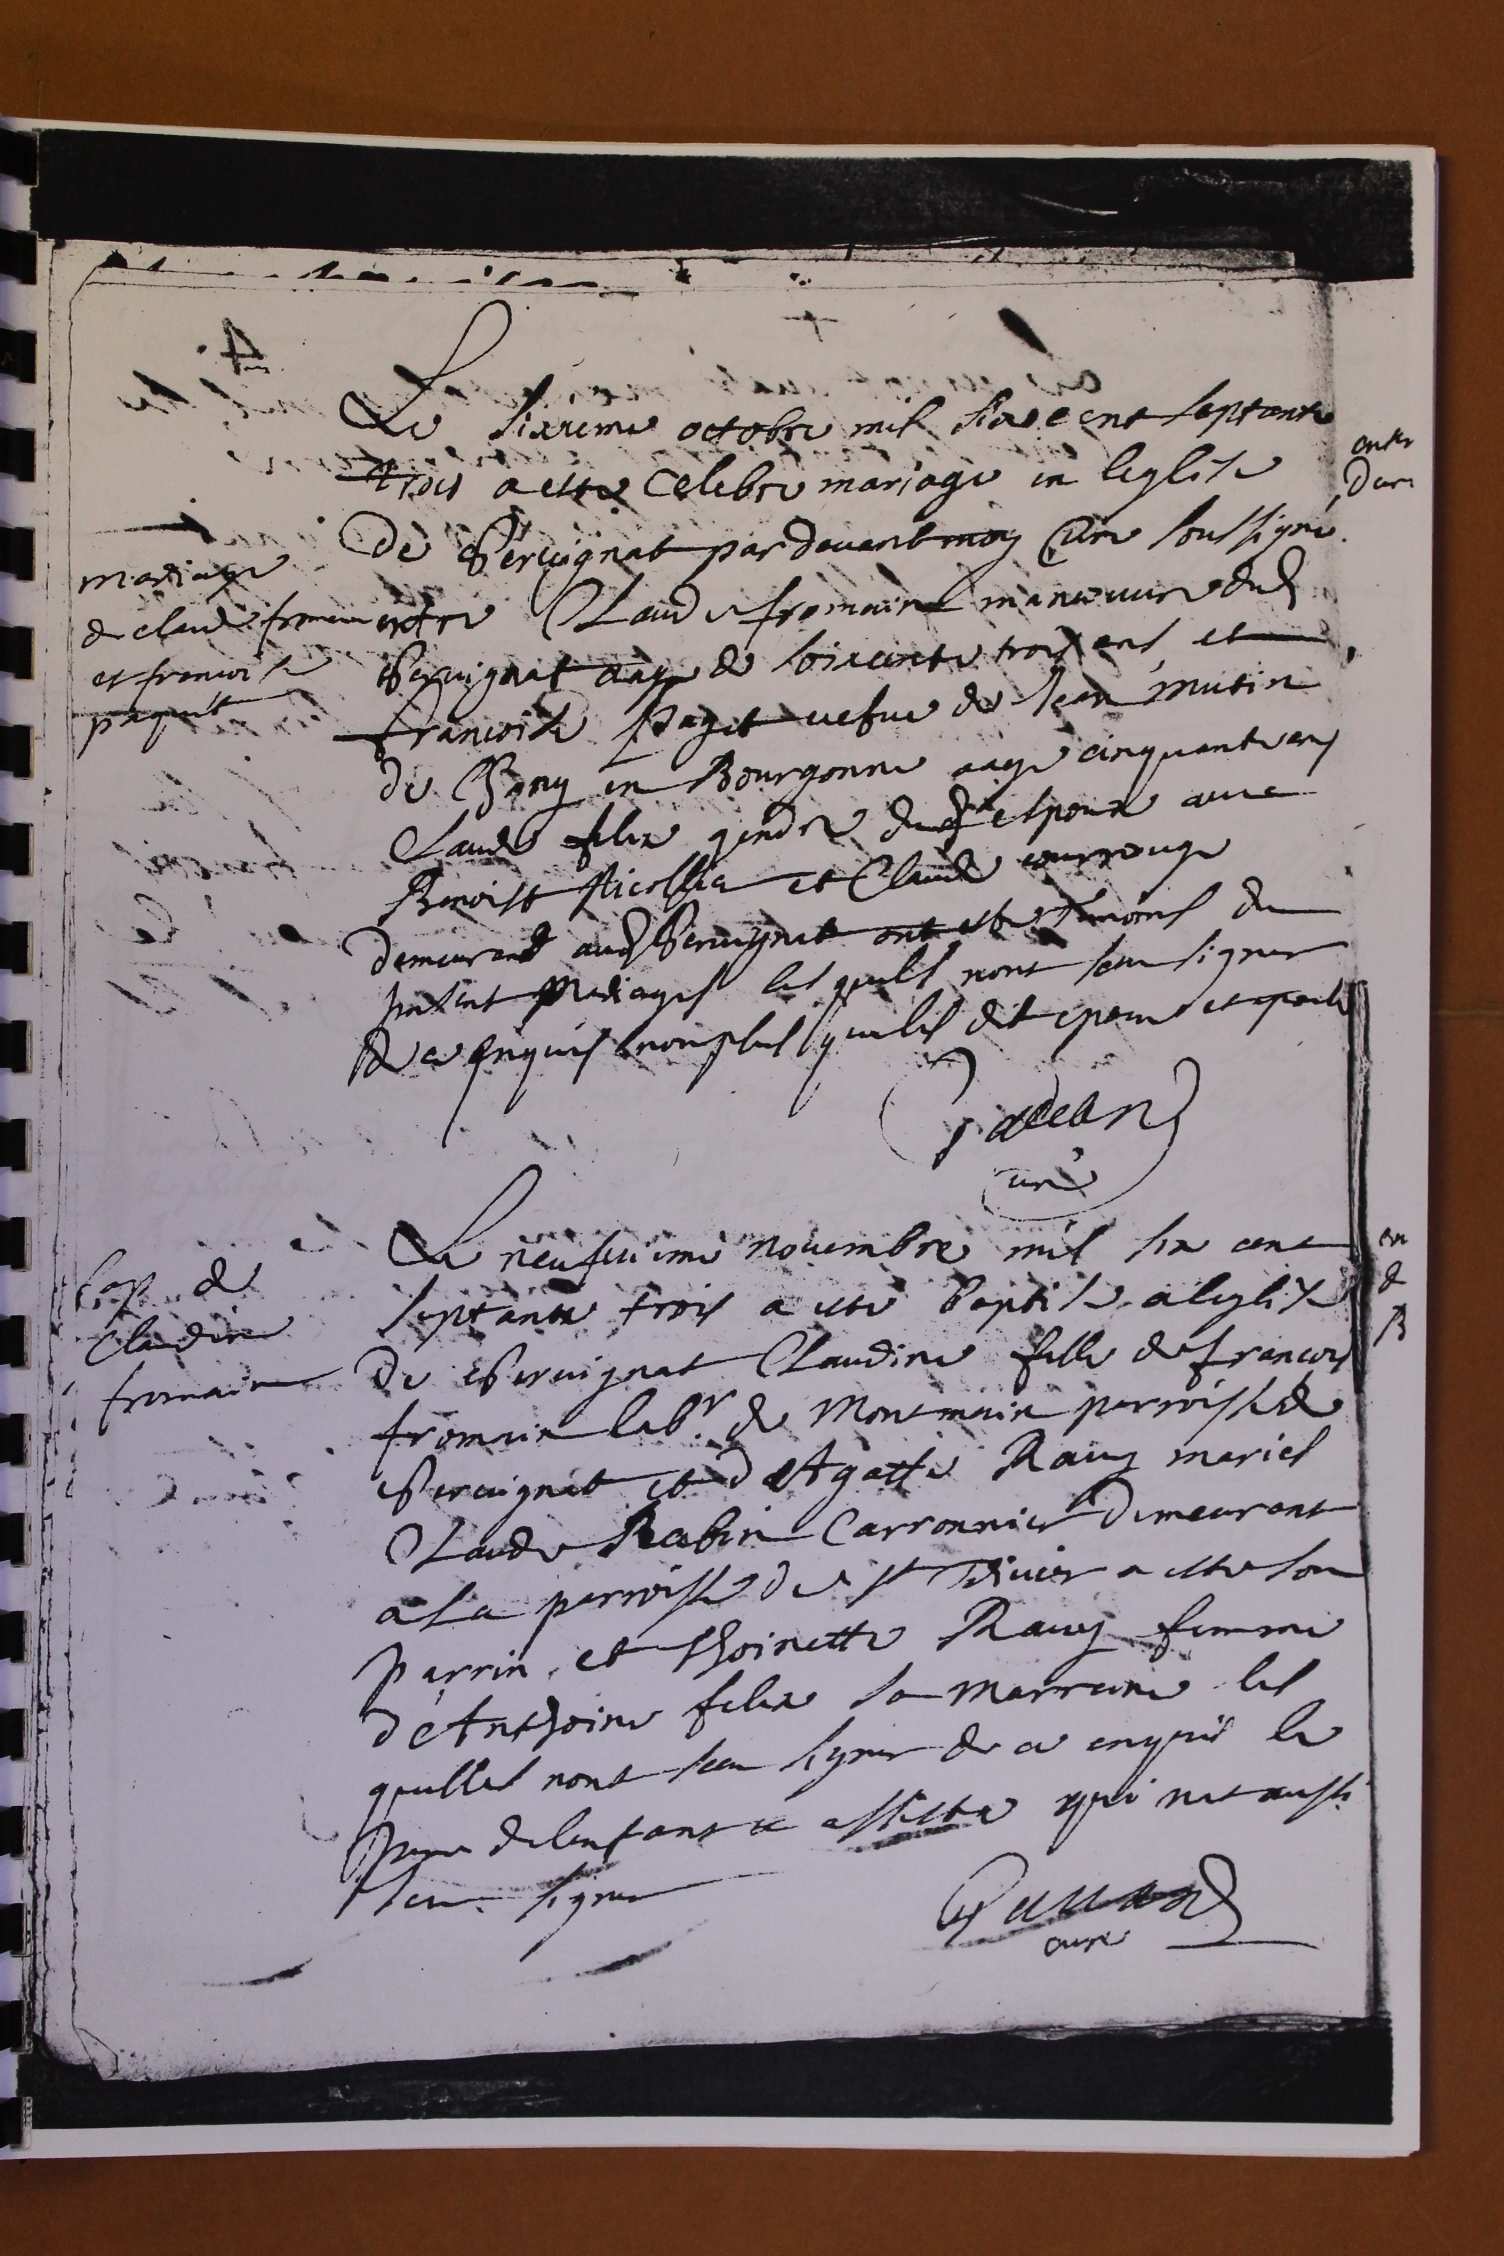 mariage
de claude fromain
et francoise
paquet
Le sixieme octobre mil six cent septante
trois a este celebre mariage en leglise
de Servignat par devant moy Cure soussigne
entre Claude fromain manoeuvre dud
Servignat aage de soixante trois ans et
francoise Paget vefve de Jean Mutin
de en Bourgonne aage cinquante ans
Claude felix gendre dud espoux avec
Benoist et Claude
demeurant aud Servignat ont este temoins du
present Mariages lesquels nont seu signer
de ce enquis nomplus que lesd epoux et epouse
cure
bap de
Claudine
fromain
Le neufvieme novembre mil six cent
septante trois a este baptise a leglise
de Servignat Claudine fille de francois
fromain labr. de Montmain parroisse de
Servignat et dAgatte Ravy maries
Claude Rabin Carronnier demeurant
a la parroisse de st Trivier a este son
parrin et Thoinette Ravy femme
dAnthoine felix sa marreine les
quelles nont seu signer de ce enquis le
pere de lenfant a assiste qui net aussi
seu signer
cure